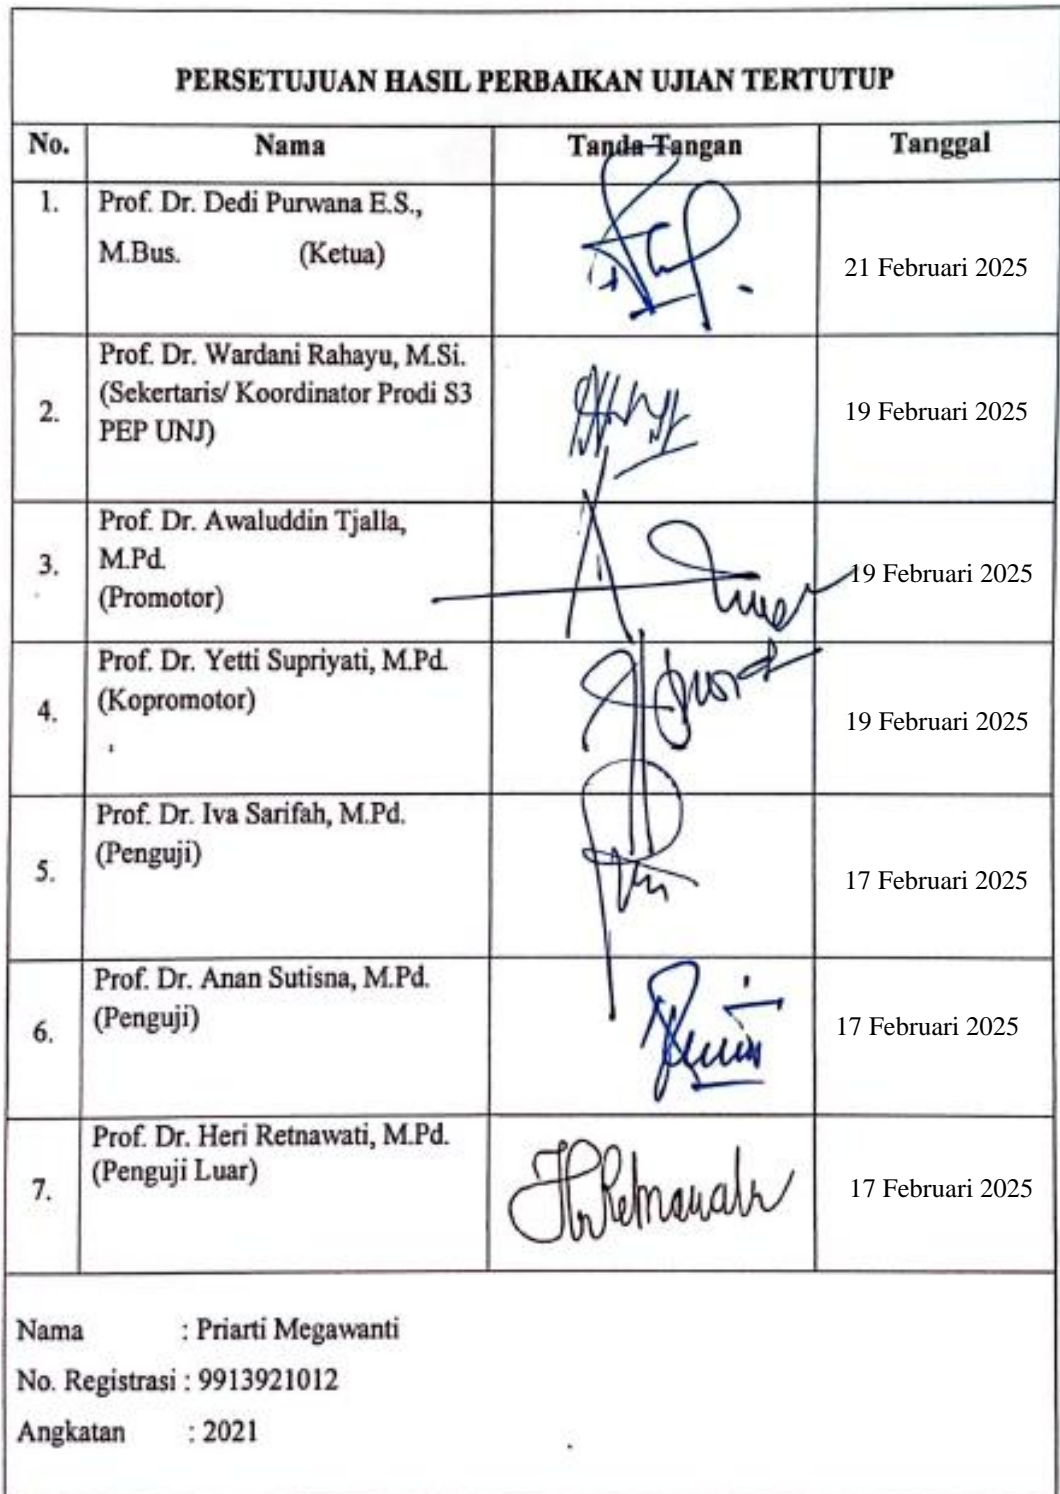 PERSETUJUAN HASIL PERBAIKAN UJIAN TERTUTUP
No. Nama Tanda Tangan Tanggal
1. Prof. Dr. Dedi Purwana E.S.,
M.Bus. (Ketua)
21 Februari 2025
Prof. Dr. Wardani Rahayu, M.Si.
(Sekertaris/ Koordinator Prodi S3
2. PEP UNJ)
19 Februari 2025
Prof. Dr. Awaluddin Tjalla,
3. M.Pd.
(Promotor)
19 Februari 2025
Prof. Dr. Yetti Supriyati, M.Pd.
(Kopromotor)
4.
19 Februari 2025
Prof. Dr. Iva Sarifah, M.Pd.
(Penguji)
5.
17 Februari 2025
Prof. Dr. Anan Sutisna, M.Pd.
(Penguji)
6.
17 Februari 2025
Prof. Dr. Heri Retnawati, M.Pd.
(Penguji Luar)
7.
17 Februari 2025
Nama : Priarti Megawanti
No. Registrasi : 9913921012
Angkatan : 2021